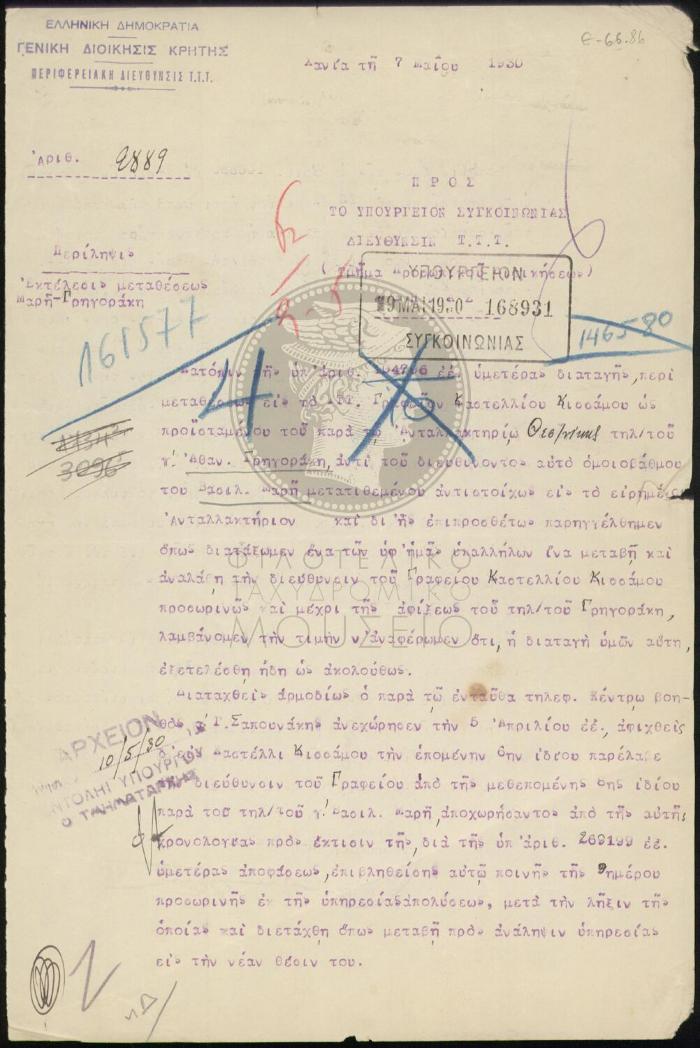 ΕΛΛΗΝΙΚΗ ΔΗΜΟΚΡΑΤΙΑ
ΓΕΝΙΚΗ ΔΙΟΙΚΗΣΙΣ ΚΡΗΤΗΣ
ΠΕΡΙΦΕΡΕΙΑΚΗ ΔΙΕΥΘΥΝΣΙΣ Τ.Τ.Τ.
Ε-66.86
Χανία τῇ 7 Μαΐου 1930
Ἀριθ. 2889
ΠΡΟΣ
ΤΟ ΥΠΟΥΡΓΕΙΟΝ ΣΥΓΚΟΙΝΩΝΙΑΣ
ΔΙΕΥΘΥΝΣΙΝ Τ.Τ.Τ.
Περίληψις
Ἐκτέλεσις μεταθέσεως
Μαρῆ-Γρηγοράκη
ΥΠΟΥΡΓΕΙΟΝ
9 ΜΑΙ 1930 168931
ΣΥΓΚΟΙΝΩΝΙΑΣ
161577
146580
Κατόπιν τῆς ὑπ' ἀριθ. ἐ.ἔ. ὑμετέρας διαταγῆς, περὶ
μεταθέσεως εἰς τὸ Γραφεῖον Καστελλίου Κισσάμου ὡς
προϊσταμένου τοῦ παρὰ τῷ Ἀνταλλακτηρίῳ Θεσ/νίκης τηλ/τοῦ
γ' Ἀθαν. Γρηγοράκη, ἀντὶ τοῦ διευθύνοντος αὐτὸ ὁμοιοβάθμου
του Βασιλ. Μαρῆ μετατιθεμένου ἀντιστοίχως εἰς τὸ εἰρημένον
Ἀνταλλακτήριον καὶ δι' ἧς ἐπιπροσθέτως παρηγγέλθημεν
ὅπως διατάξωμεν ἕνα τῶν ὑφ' ἡμᾶς ὑπαλλήλων ἵνα μεταβῇ καὶ
ἀναλάβῃ τὴν διεύθυνσιν τοῦ Γραφείου Καστελλίου Κισσάμου
προσωρινῶς καὶ μέχρι τῆς ἀφίξεως τοῦ τηλ/τοῦ Γρηγοράκη,
λαμβάνομεν τὴν τιμὴν ν' ἀναφέρωμεν ὅτι, ἡ διαταγὴ ὑμῶν αὕτη,
ἐξετελέσθη ἤδη ὡς ἀκολούθως.
Διαταχθεὶς ἁρμοδίως ὁ παρὰ τῷ ἐνταῦθα τηλεφ. Κέντρῳ βοη-
θὸς Γ. Σαπουνάκης ἀνεχώρησεν τὴν 5 Ἀπριλίου ἐ.ἔ., ἀφιχθεὶς
δὲ εἰς Καστέλλι Κισσάμου τὴν ἑπομένην 6ην ἰδίου παρέλαβε
διεύθυνσιν τοῦ Γραφείου ἀπὸ τῆς μεθεπομένης 8ης ἰδίου
παρὰ τοῦ τηλ/τοῦ γ' Βασιλ. Μαρῆ, ἀποχωρήσαντος ἀπὸ τῆς αὐτῆς
χρονολογίας πρὸς ἔκτισιν τῆς, διὰ τῆς ὑπ' ἀριθ. 269199 ἐ.ἔ.
ὑμετέρας ἀποφάσεως, ἐπιβληθείσης αὐτῷ ποινῆς τῆς 9ημέρου
προσωρινῆς ἐκ τῆς ὑπηρεσίας ἀπολύσεως, μετὰ τὴν λῆξιν τῆς
ὁποίας καὶ διετάχθη ὅπως μεταβῇ πρὸς ἀνάληψιν ὑπηρεσίας
εἰς τὴν νέαν θέσιν του.
ΑΡΧΕΙΟΝ
10/5/30
ΕΝΤΟΛΗι ΥΠΟΥΡΓΟΥ
Ο ΤΜΗΜΑΤΑΡΧΗΣ
ΦΙΛΟΤΕΛΙΚΟ
ΤΑΧΥΔΡΟΜΙΚΟ
ΜΟΥΣΕΙΟ